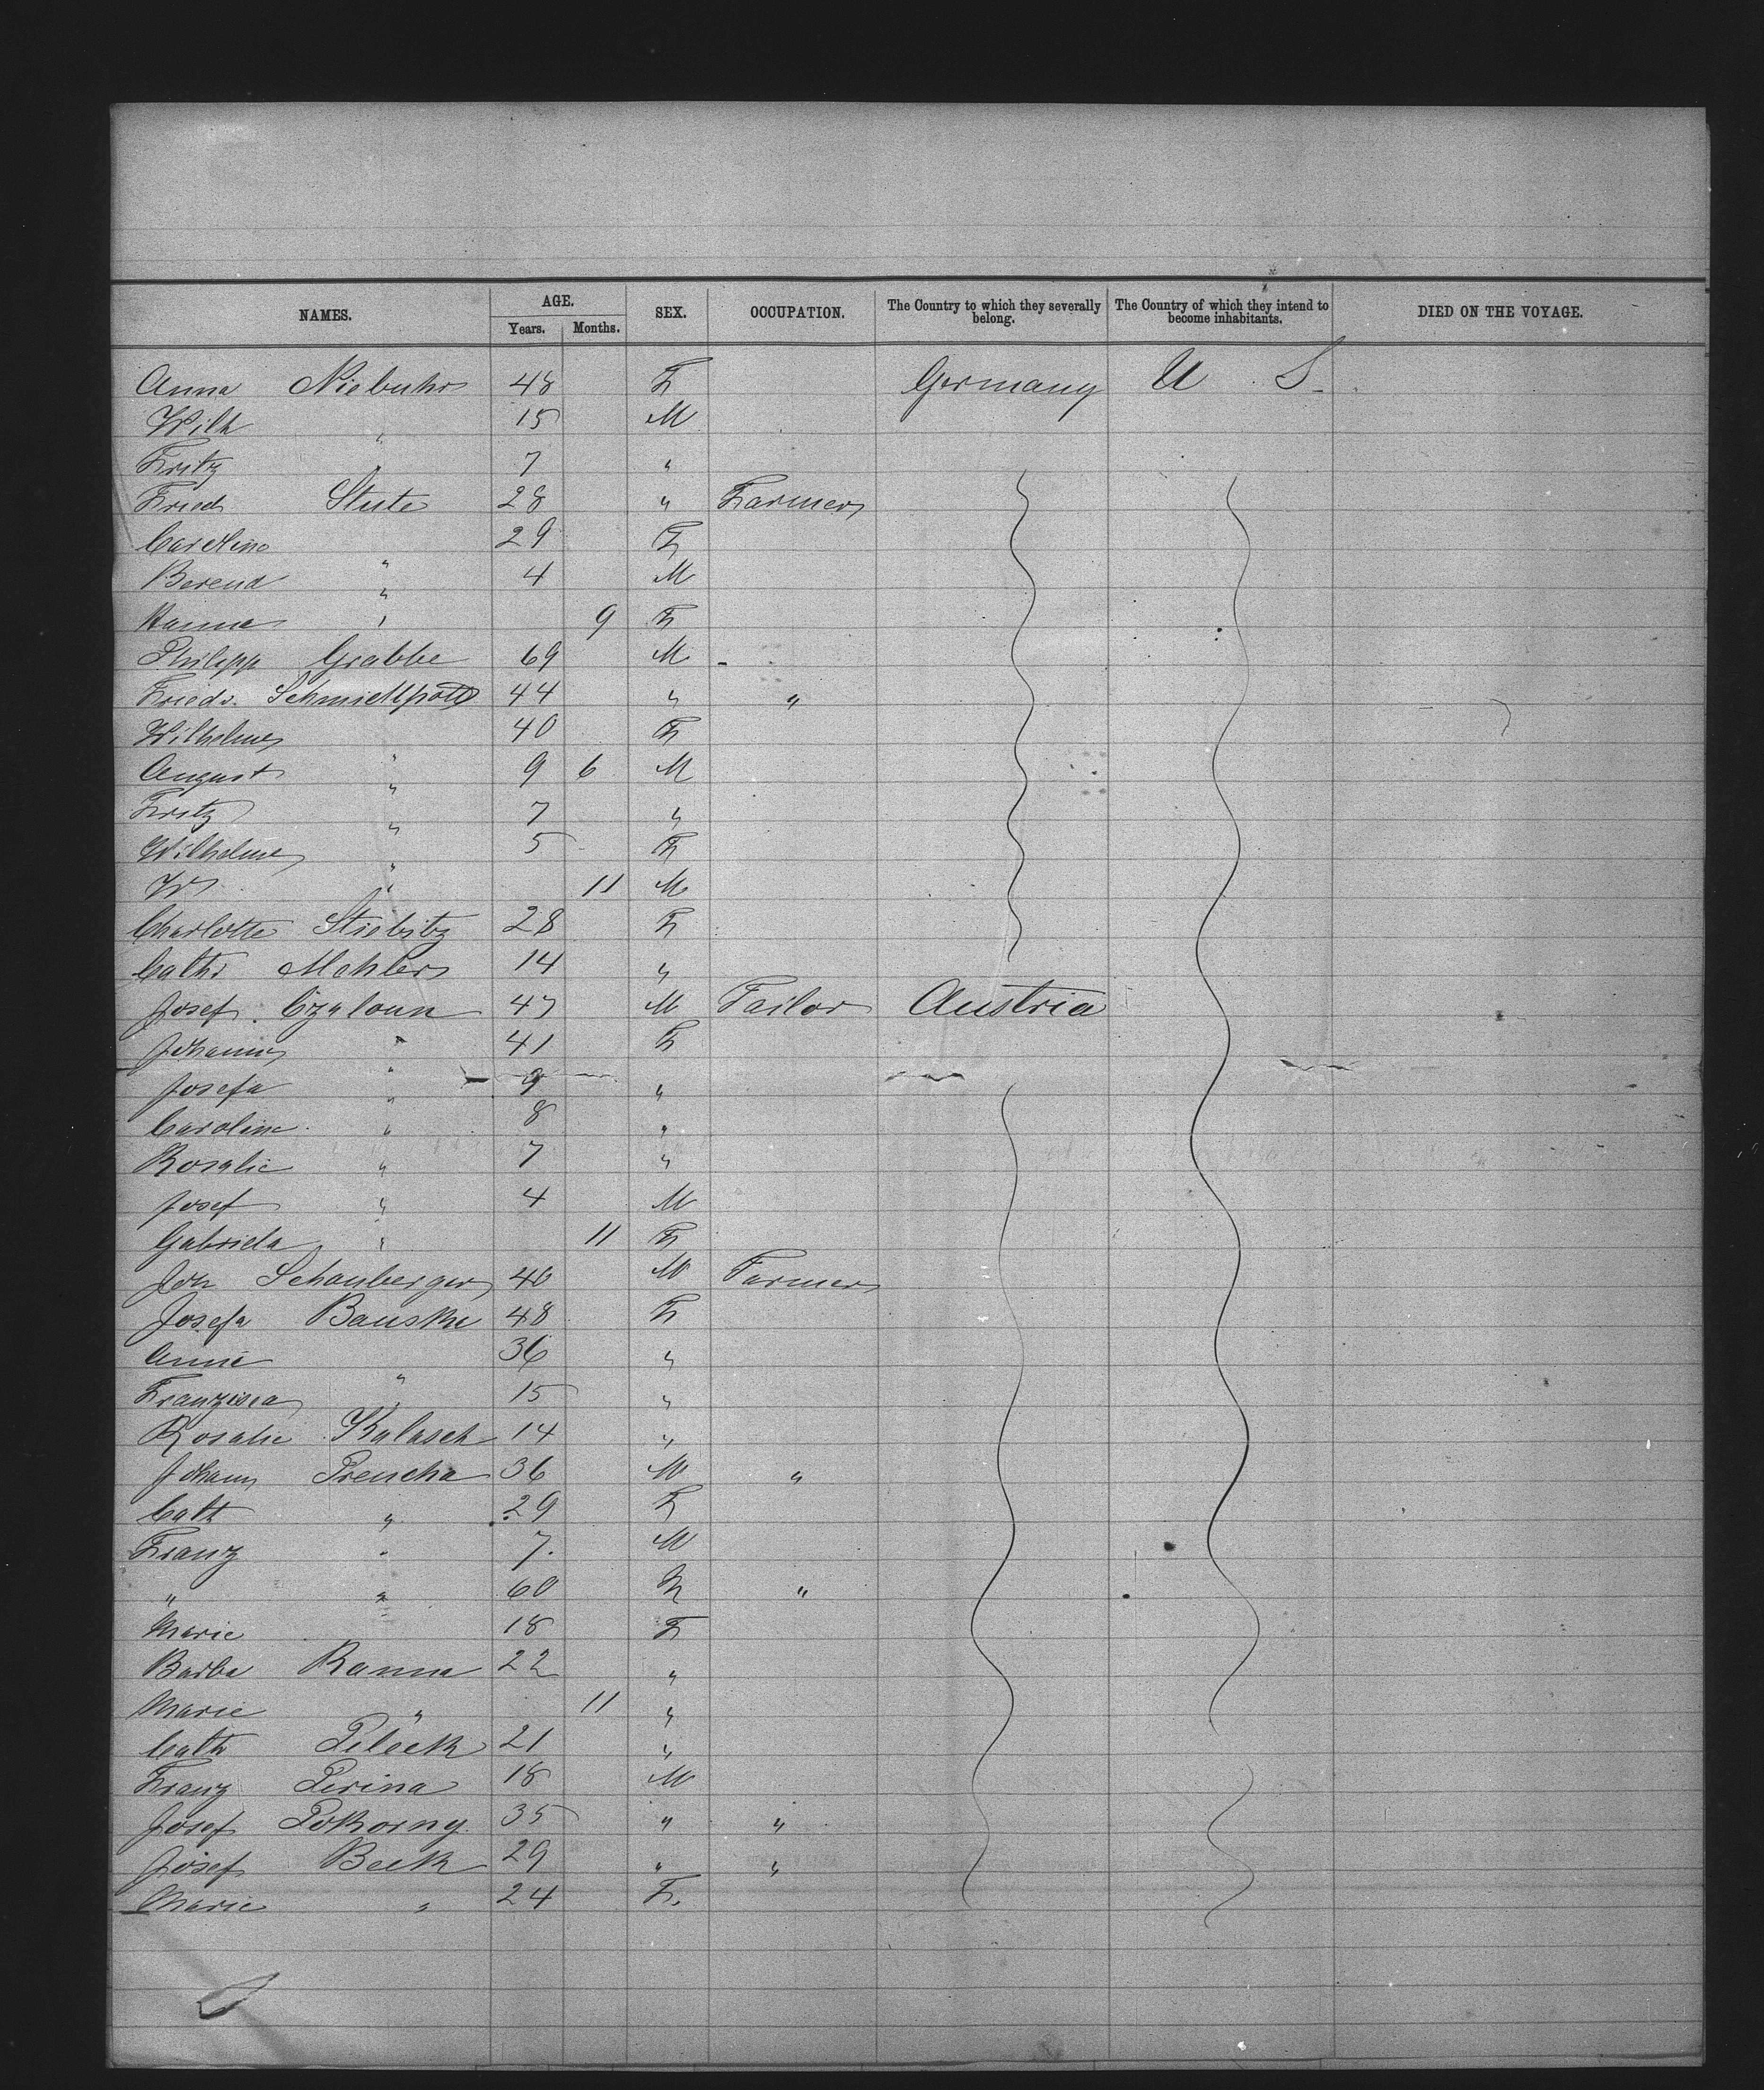 NAMES. AGE. SEX. OCCUPATION. The Country to which they severally belong. The Country of which they intend to become inhabitants. DIED ON THE VOYAGE.
Years. Months.
Anna Niebuhr 48 F Germany U. S.
Wilh " 15 M
Fritz " 7 "
Fried Stute 28 " Farmer
Caroline " 29 F
Berend " 4 M
Hanna " 9 F
Philipp Grabbe 69 M -
Friedr. Schmidtpott 44 " "
Wilhelme " 40 F
August " 9 6 M
Fritz " 7 "
Wilhelme " 5 F
W " 11 M
Charlotte Stiebitz 28 F
Cathr Mehlers 14 "
Josef Czaloun 47 M Tailor Austria
Johanna " 41 F
Josefa " 9 "
Caroline " 8 "
Rosalie " 7 "
Josef " 4 M
Gabriela " 11 F
Joh Schauberger 40 M Farmer
Josefa Bauska 48 F
Anna " 36 "
Franzisca " 15 "
Rosalie Kalasch 14 "
Johann Prencha 36 M "
Cath " 29 F
Franz " 7. M
" " 60 M "
Marie 18 F
Barba Ranna 22 "
Marie " 11 "
Cath Pileck 21 "
Franz Perina 18 M
Josef Pokorny 35 " "
Josef Beck 29 " "
Marie " 24 F.